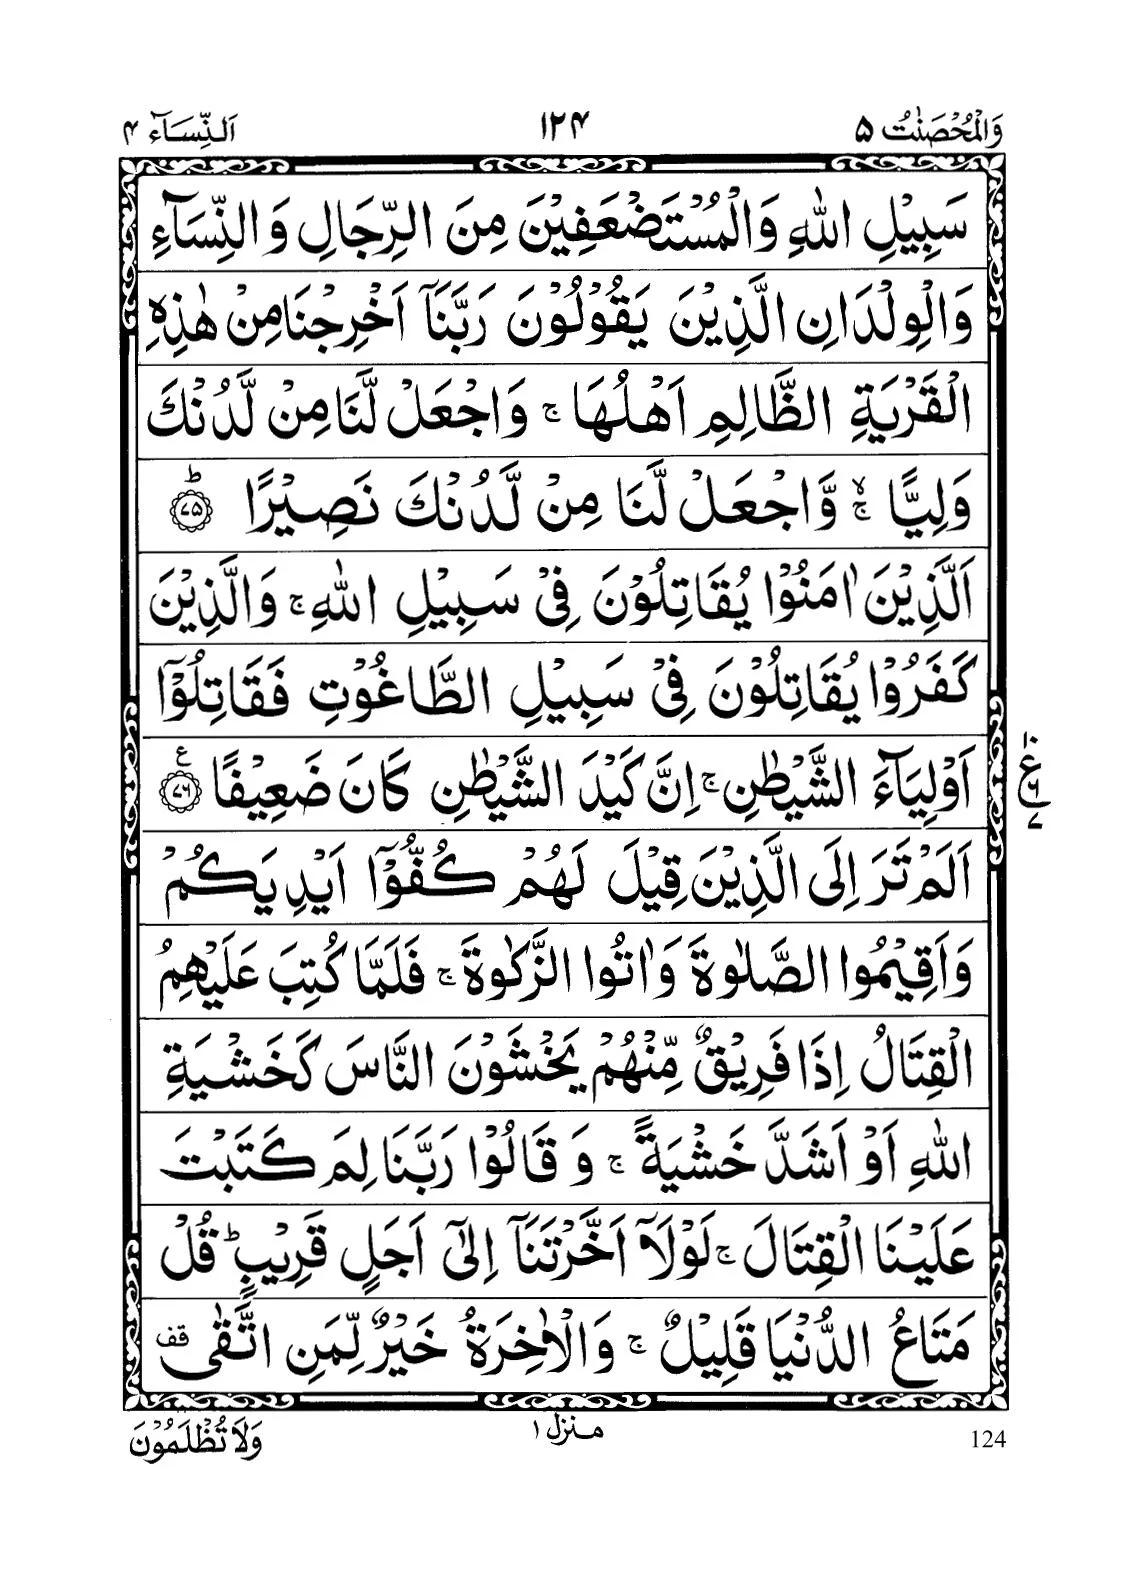 وَالْمُحْصَنٰتُ ۵
۱۲۴
اَلنِّسَآء ۴
سَبِيْلِ اللّٰهِ وَالْمُسْتَضْعَفِيْنَ مِنَ الرِّجَالِ وَالنِّسَآءِ
وَالْوِلْدَانِ الَّذِيْنَ يَقُوْلُوْنَ رَبَّنَاۤ اَخْرِجْنَا مِنْ هٰذِهِ
الْقَرْيَةِ الظَّالِمِ اَهْلُهَا ۚ وَاجْعَلْ لَّنَا مِنْ لَّدُنْكَ
وَلِيًّا ۙۚ وَّاجْعَلْ لَّنَا مِنْ لَّدُنْكَ نَصِيْرًا ؕ ﴿۷۵﴾
اَلَّذِيْنَ اٰمَنُوْا يُقَاتِلُوْنَ فِيْ سَبِيْلِ اللّٰهِ ۚ وَالَّذِيْنَ
كَفَرُوْا يُقَاتِلُوْنَ فِيْ سَبِيْلِ الطَّاغُوْتِ فَقَاتِلُوْۤا
اَوْلِيَآءَ الشَّيْطٰنِ ۚ اِنَّ كَيْدَ الشَّيْطٰنِ كَانَ ضَعِيْفًا ع ﴿۷۶﴾
۱۰ ع ۶ ۷
اَلَمْ تَرَ اِلَى الَّذِيْنَ قِيْلَ لَهُمْ كُفُّوْۤا اَيْدِيَكُمْ
وَاَقِيْمُوا الصَّلٰوةَ وَاٰتُوا الزَّكٰوةَ ۚ فَلَمَّا كُتِبَ عَلَيْهِمُ
الْقِتَالُ اِذَا فَرِيْقٌ مِّنْهُمْ يَخْشَوْنَ النَّاسَ كَخَشْيَةِ
اللّٰهِ اَوْ اَشَدَّ خَشْيَةً ۚ وَقَالُوْا رَبَّنَا لِمَ كَتَبْتَ
عَلَيْنَا الْقِتَالَ ۚ لَوْلَاۤ اَخَّرْتَنَاۤ اِلٰۤى اَجَلٍ قَرِيْبٍ ؕ قُلْ
مَتَاعُ الدُّنْيَا قَلِيْلٌ ۚ وَالْاٰخِرَةُ خَيْرٌ لِّمَنِ اتَّقٰى قف
وَلَا تُظْلَمُوْنَ
منزل ۱
124